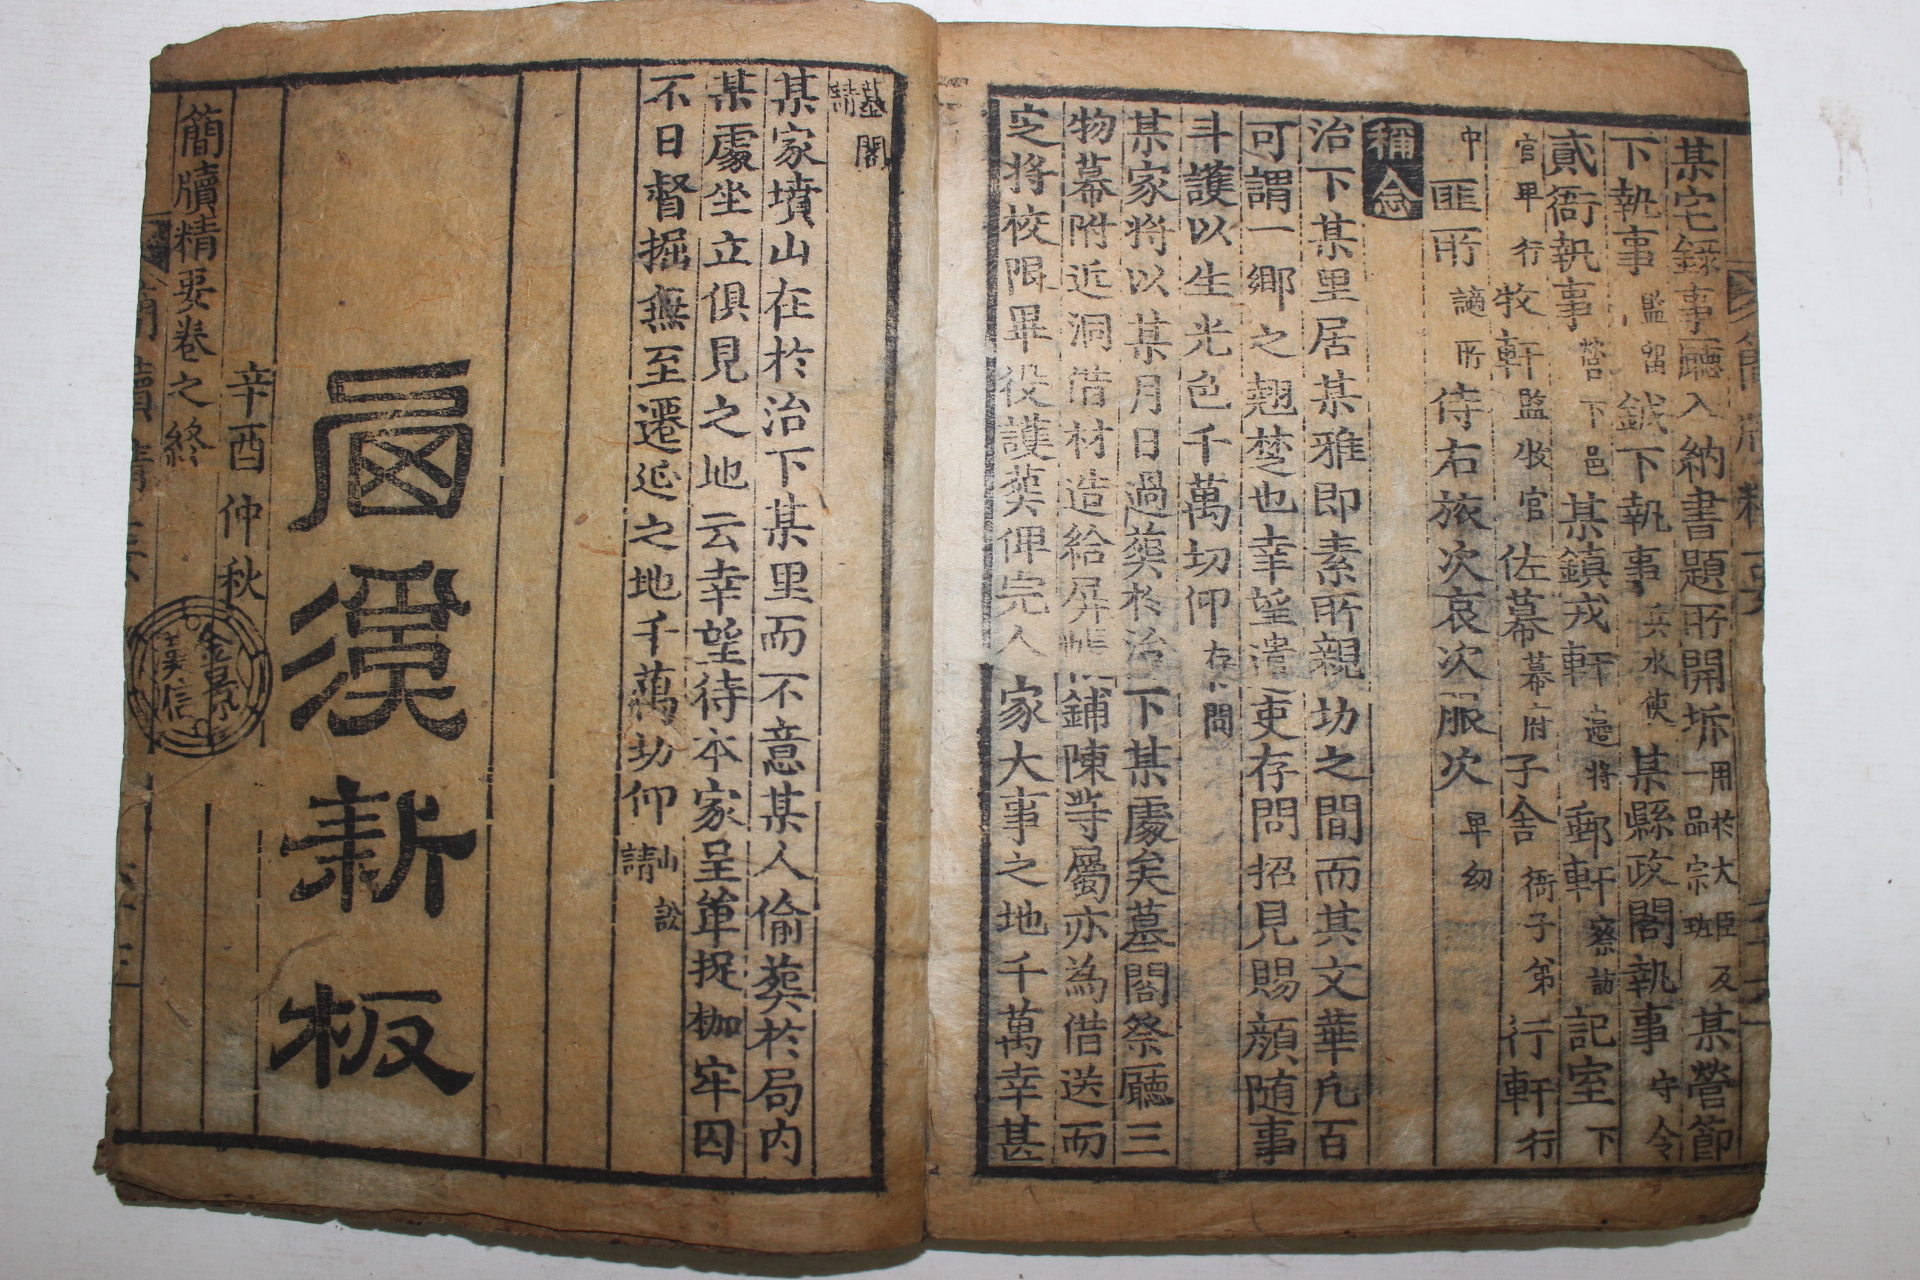 某宅錄事廳入納書題所開坼用於大臣及一品宗班某營節
下執事監留鉞下執事兵水使某縣政閣執事守令
貳衙執事營下邑某鎮戎軒邊將郵軒察訪記室下
官卑行牧軒監牧官佐幕幕府子舍衙子弟行軒行
中匪所謫所侍右旅次哀次服次卑幼
稱念
治下某里居某雅即素所親切之間而其文華凡百
可謂一鄉之翹楚也幸望遣吏存問招見賜顏隨事
斗護以生光色千萬切仰存問
某家將以某月日過葬於治下某處矣墓閣祭廳三
物幕附近洞借材造給屏帳鋪陳等屬亦為借送而
定將校限畢役護葬俾完人家大事之地千萬幸甚
墓閣請
某家墳山在於治下某里而不意某人偷葬於局內
某處坐立俱見之地云幸望待本家呈单捉枷牢囚
不日督掘無至遷延之地千萬切仰山訟請
武橋新板
辛酉仲秋
簡牘精要卷之終